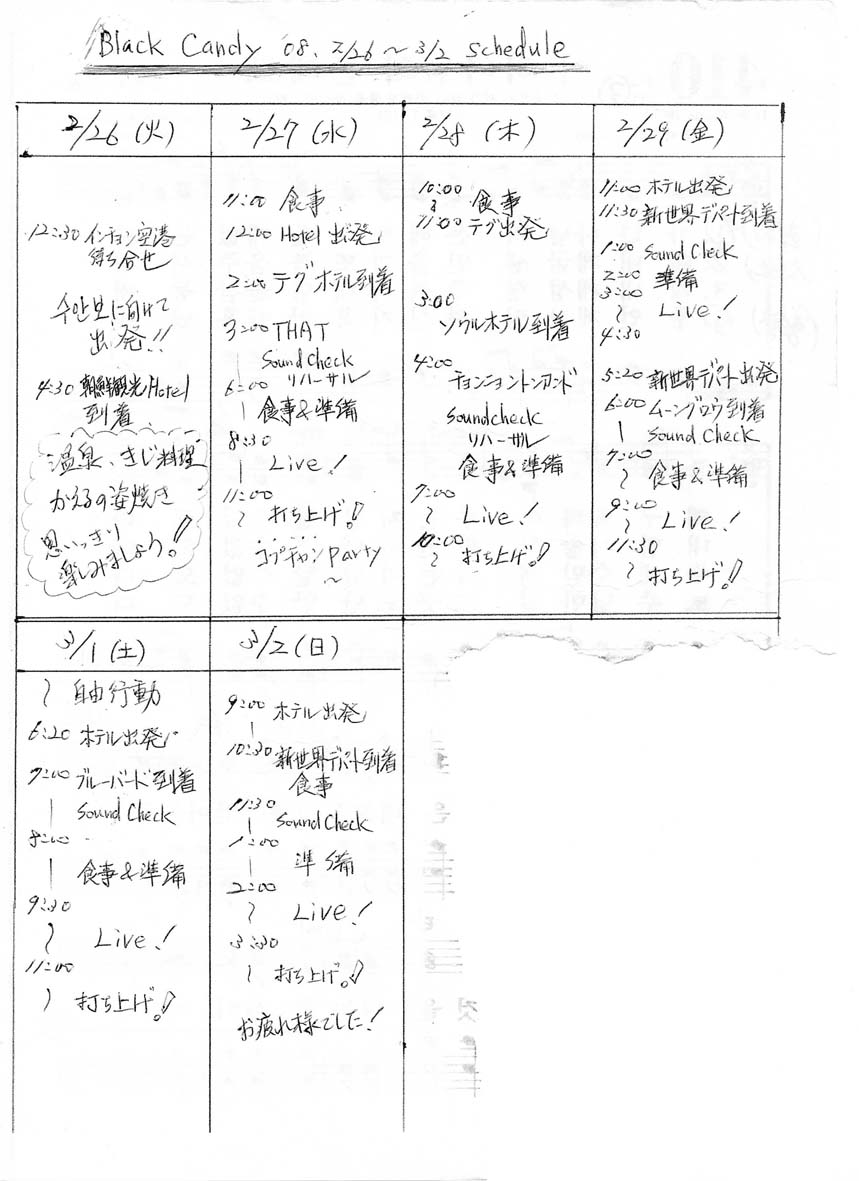 Black Candy 08. 2/26 〜 3/2 schedule
2/26 (火)
12:30 インチョン空港
待ち合せ
수안보に向けて
出発!!
4:30 朝鮮観光Hotel
到着
温泉、きじ料理
かえるの姿焼き
思いっきり
楽しみましょう!
2/27 (水)
11:00 食事
12:00 Hotel 出発
2:00 テグホテル到着
3:00 THAT
| Sound Check
リハーサル
6:00
| 食事&準備
8:30
| Live!
11:00
〜 打ち上げ!
コプチャン Party
〜
2/28 (木)
10:00
〜 食事
11:00 テグ出発
3:00
ソウルホテル到着
4:00
チョンニョントンアンド
Soundcheck
リハーサル
食事&準備
7:00
〜 Live!
10:00
〜 打ち上げ!
2/29 (金)
11:00 ホテル出発
11:30 新世界デパート到着
1:00 Sound Check
2:00 準備
3:00
〜 Live!
4:30
5:20 新世界デパート出発
6:00 ムーングロウ到着
| Sound Check
7:00
〜 食事&準備
9:00
〜 Live!
11:30
〜 打ち上げ!
3/1 (土)
〜 自由行動
6:20 ホテル出発
7:00 ブルーバード到着
| Sound Check
8:00
| 食事&準備
9:30
〜 Live!
11:00
〜 打ち上げ!
3/2 (日)
9:00 ホテル出発
|
10:30 新世界デパート到着
食事
11:30
| Sound Check
1:00
| 準備
2:00
〜 Live!
3:30
〜 打ち上げ!
お疲れ様でした!